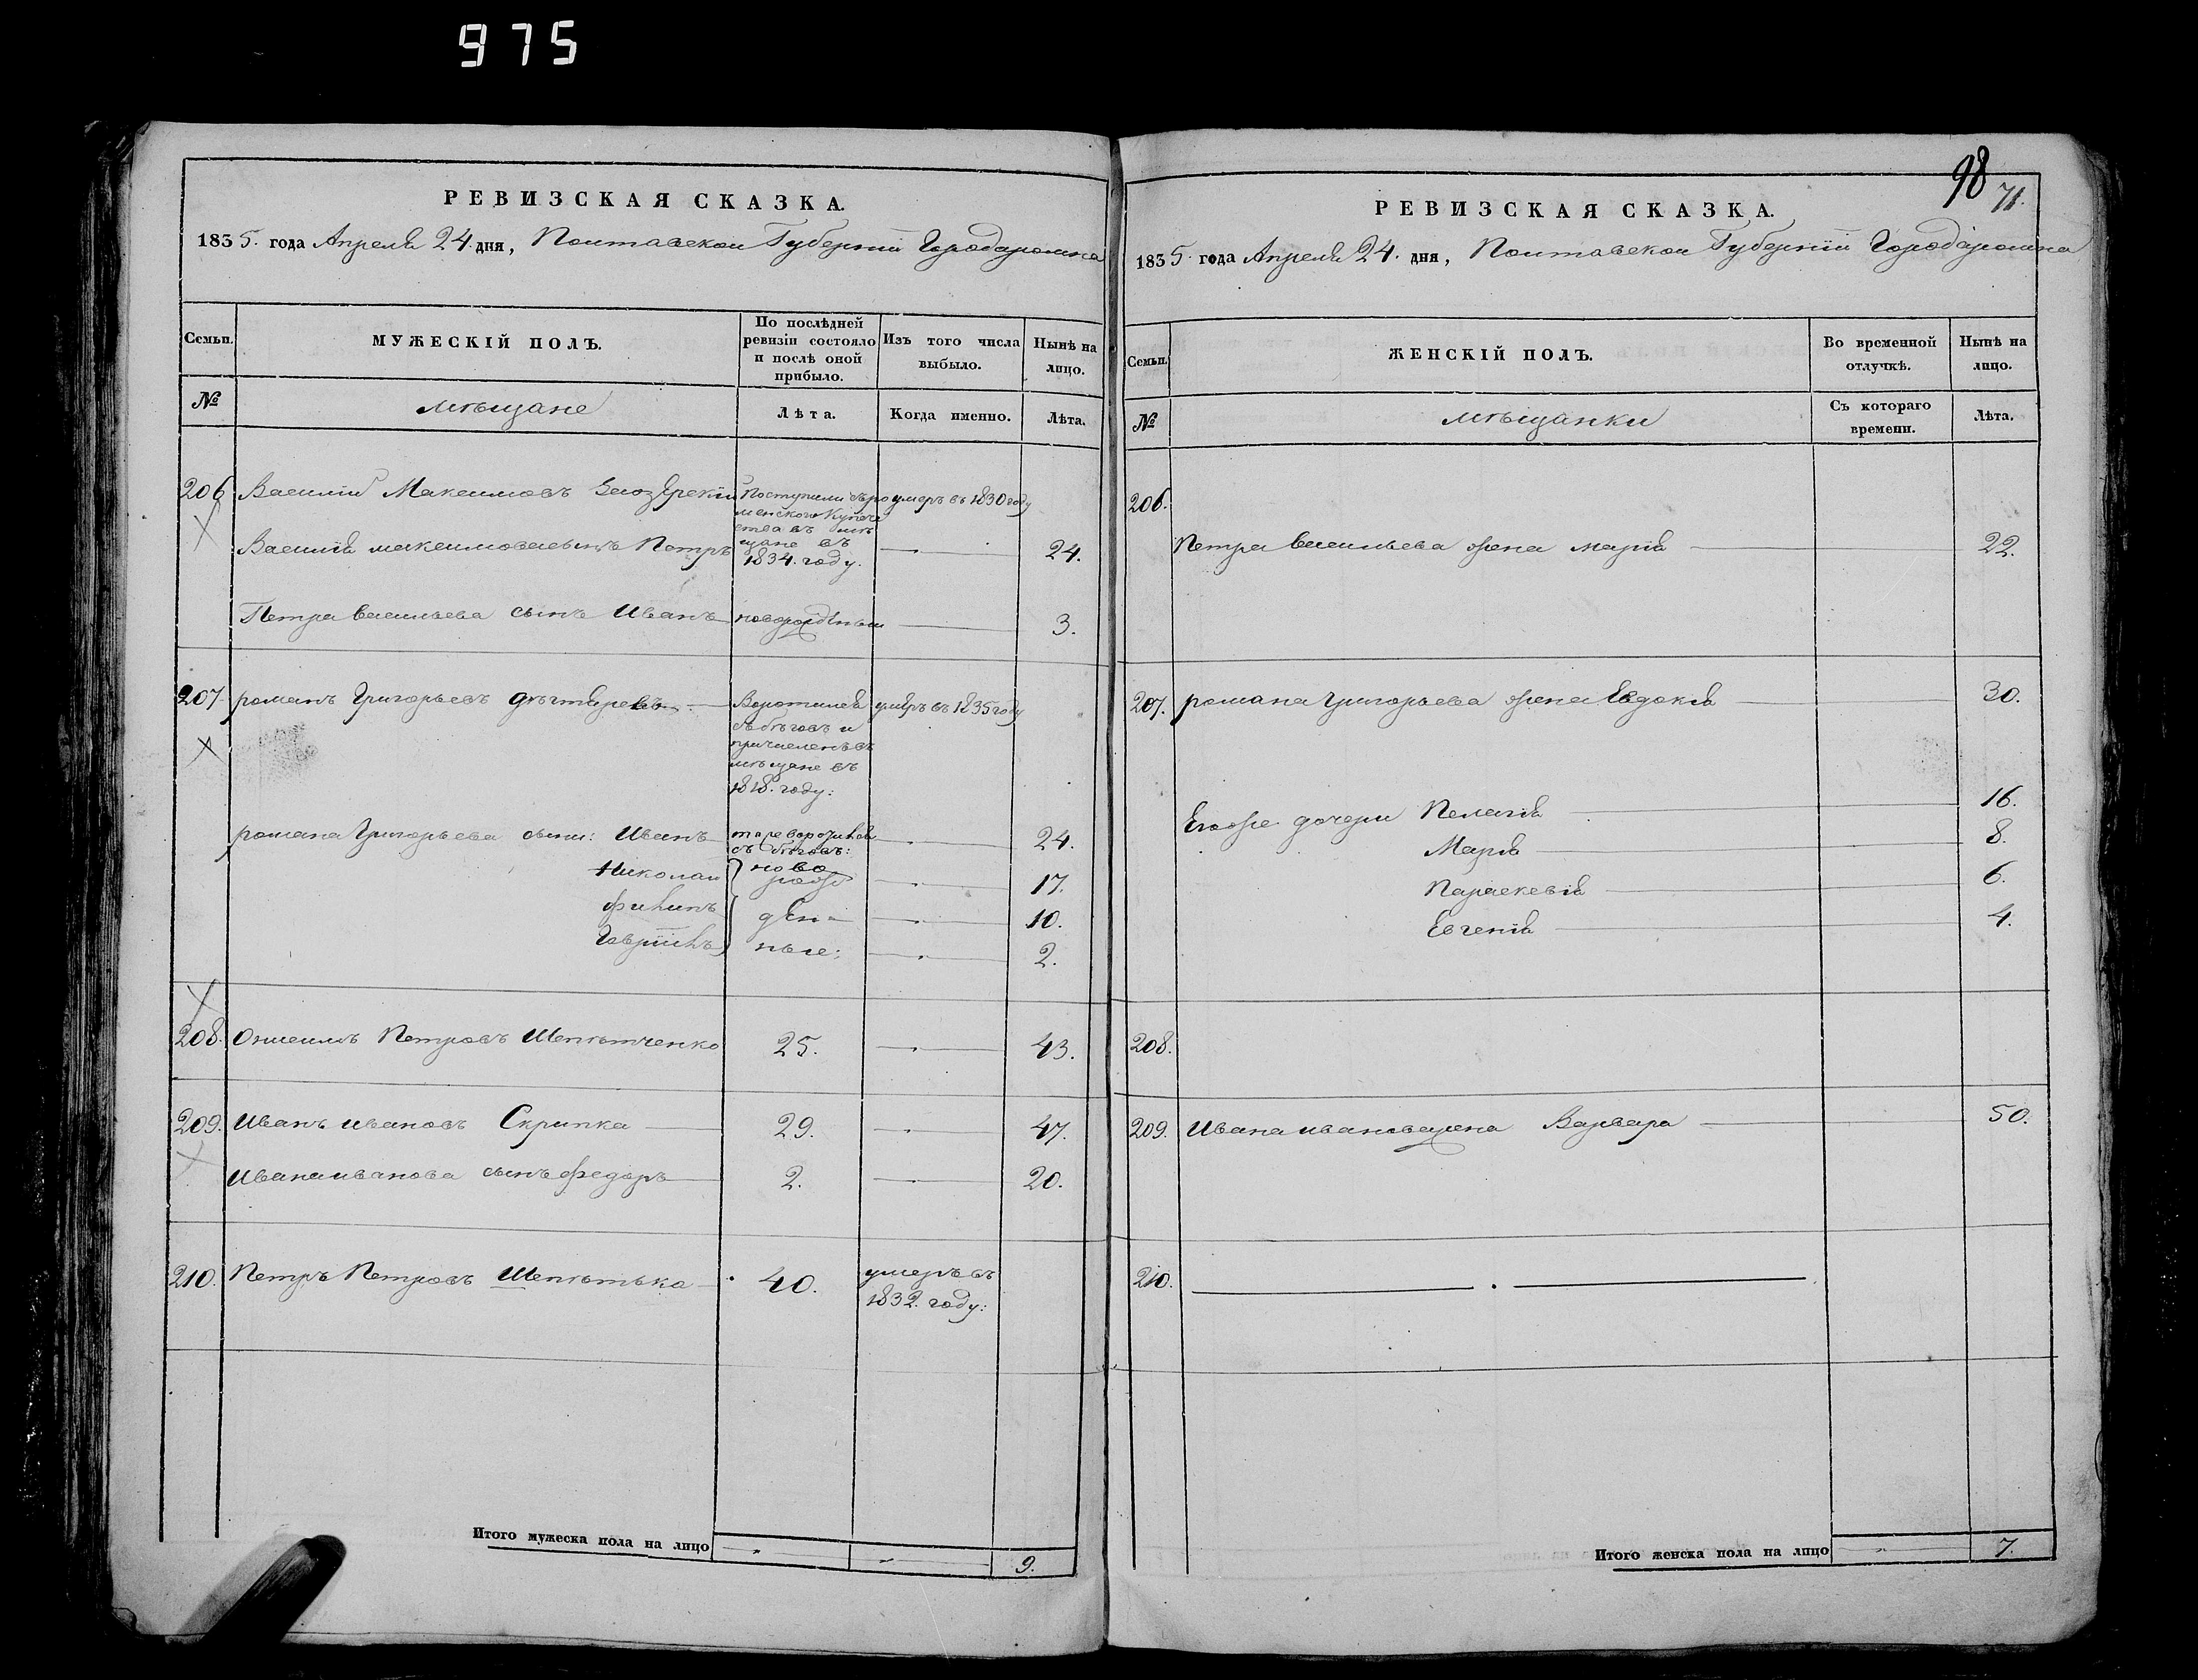 975
РЕВИЗСКАЯ СКАЗКА.
1835. года Апреля 24. дня, Полтавской Губернии Города Ромна
Семьи.
МУЖЕСКІЙ ПОЛЪ.
По послѣдней ревизіи состояло и послѣ оной прибыло.
Изъ того числа выбыло.
Нынѣ на лицо.
№
мѣщане
Лѣта.
Когда именно.
Лѣта.
206 Василий Максимовъ Поступили съ ро умеръ въ 1830 году
менского Купече
ства въ мѣ
щане въ
1834. году.
Василія максимова сынъ Петръ 24.
Петра васильева сынъ Иванъ новорожденный 3.
207. романъ Григорьевъ Воротился умеръ въ 1835 году
съ бѣговъ и
причисленъ въ
мѣщане въ
1818. году:
романа Григорьева сыны: Иванъ тоже 24.
съ бѣговъ:
Николай ново 17.
рож
Филипъ ден- 10.
Гавріилъ ные: 2.
208. Онисимъ Петровъ Шепѣтченко 25. 43.
209. Иванъ ивановъ Скрипка 29. 47.
Ивана иванова сынъ Федоръ 2. 20.
210. Петръ Петровъ Шепѣтько 40. умеръ въ
1832. году:
Итого мужеска пола на лицо 9.
98
71.
РЕВИЗСКАЯ СКАЗКА.
1835 года Апреля 24. дня, Полтавской Губерніи Города Ромна
Семьи.
ЖЕНСКІЙ ПОЛЪ.
Во временной отлучкѣ.
Нынѣ на лицо.
№
мѣщанки
Съ котораго времени.
Лѣта.
206.
Петра васильева жена марія 22.
207. романа Григорьева жена Евдокія 30.
Егоже дочери Пелагія 16.
Марія 8.
Параскевія 6.
Евгенія 4.
208.
209. Ивана иванова жена Варвара 50.
210.
Итого женска пола на лицо 7.